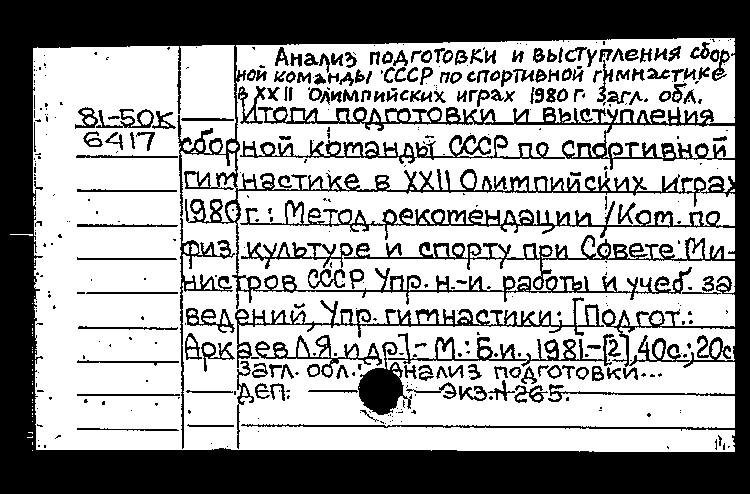 Анализ подготовки и выступления сбор-
ной команды СССР по спортивной гимнастике
в XXII Олимпийских играх 1980 г. Загл. обл.
81-50К
6417
Итоги подготовки и выступления
сборной команды СССР по спортивной
гимнастике в XXII Олимпийских играх
1980 г.: Метод. рекомендации / Ком. по
физ. культуре и спорту при Совете Ми-
нистров СССР, Упр. н.-и. работы и учеб. за
ведений, Упр. гимнастики; [Подгот.:
Аркаев Л.Я. и др].- М.: Б.и., 1981.-[2], 40с.; 20с
Загл. обл.: Анализ подготовки...
ДЕП. ЭКЗ. № 265.